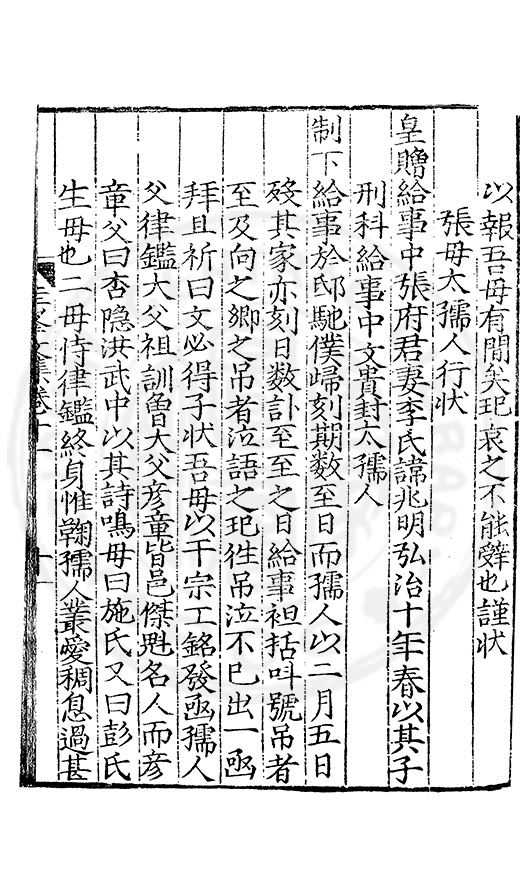 以報吾母有間矣玘哀之不能辭也謹状
張母太孺人行状
皇贈給事中張府君妻李氏諱兆明弘治十年春以其子
刑科給事中文貴封太孺人
制下給事於邸馳僕歸刻期数至日而孺人以二月五日
殁其家亦刻日数訃至至之日給事袒括呌號吊者
至及向之郷之吊者泣語之玘徃吊泣不已出一函
拜且祈曰文必得子状吾母以干宗工銘發函孺人
父律鑑大父祖訓魯大父彦童皆邑傑魁名人而彦
章父曰杏隐洪武中以其詩鳴母曰施氏又曰彭氏
生母也二母侍律鑑終身惟鞠孺人叢愛稠息過甚
文集卷十一